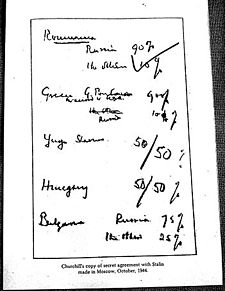 Roumania
Russia 90%
The others 10%
Greece G. Britain 90%
in accord with U.S.A.
Russia 10%
Yugoslavia 50/50 %
Hungary 50/50 %
Bulgaria Russia 75%
The others 25%
Churchill's copy of secret agreement with Stalin
made in Moscow, October, 1944.